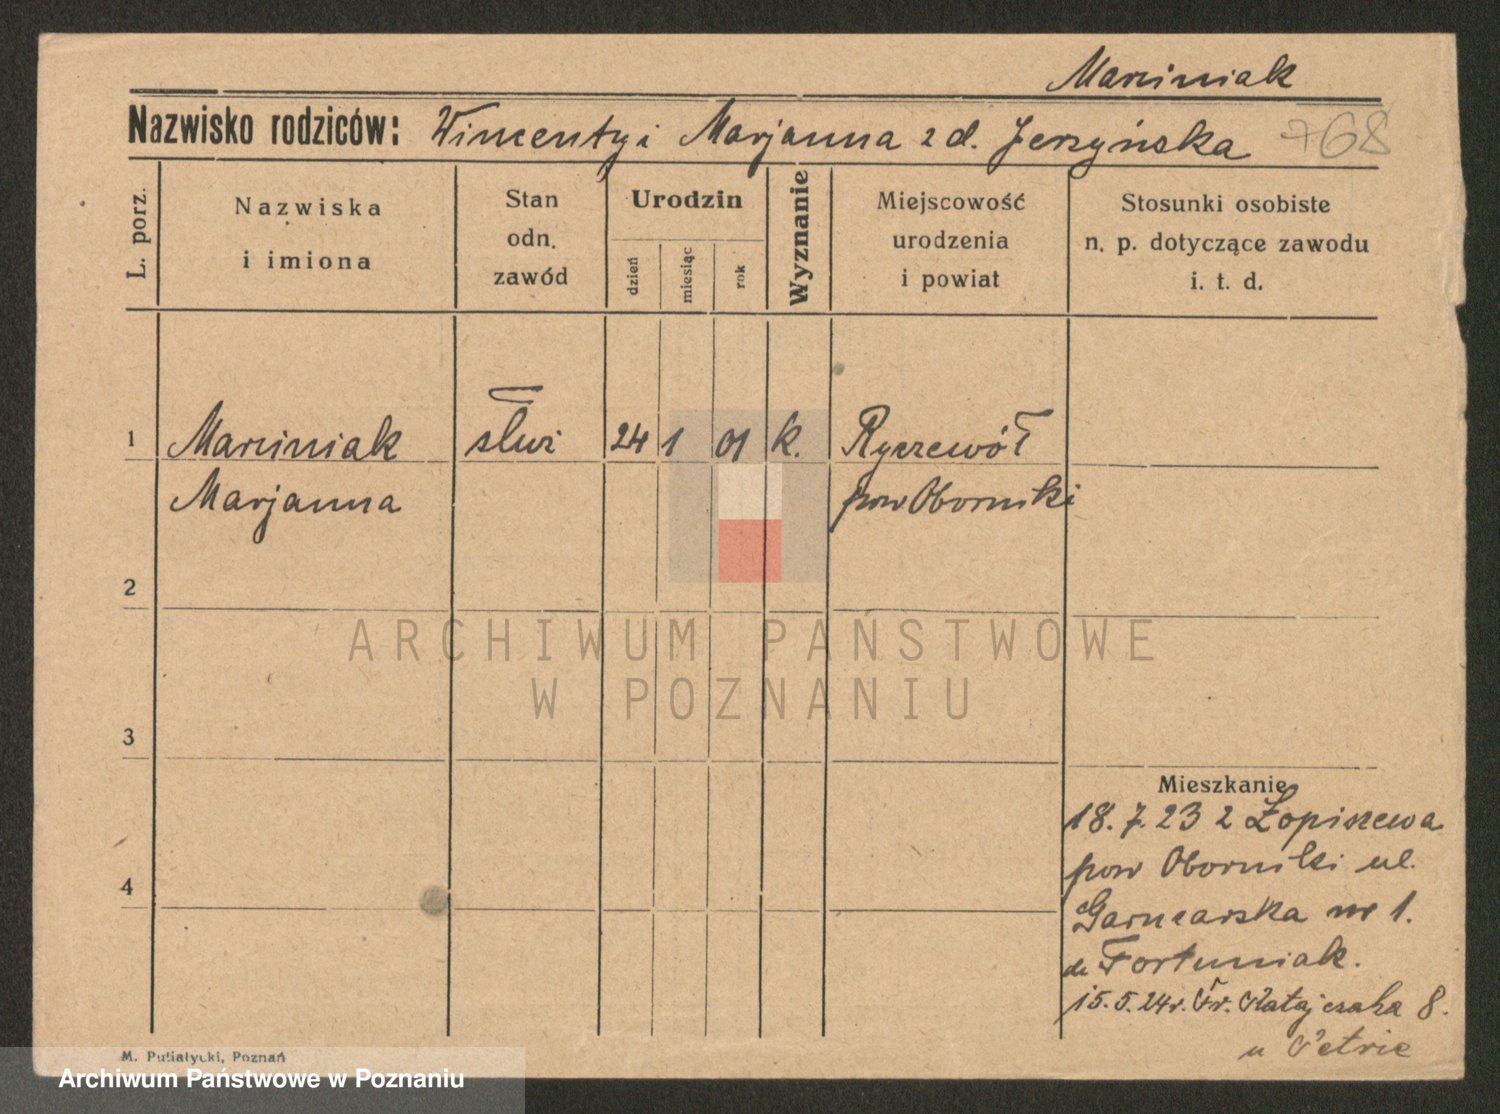 Marciniak
Nazwisko rodziców: Wincenty i Marjanna z d. Jerzyńska 768
L. porz.
Nazwiska
i imiona
Stan
odn.
zawód
Urodzin
dzień
miesiąc
rok
Wyznanie
Miejscowość
urodzenia
i powiat
Stosunki osobiste
n. p. dotyczące zawodu
i. t. d.
1 Marciniak służ 24 1 01 k. Ryczewół
Marjanna pow Oborniki
2
ARCHIWUM PAŃSTWOWE
W POZNANIU
3
Mieszkanie
18. 7. 23 z Łopiszewa
pow Oborniki ul.
4
Garncarska nr 1.
Fortuniak.
15. 5. 24 r. Fr. Ratajczaka 8.
u Petrie
M. Putiatycki, Poznań
Archiwum Państwowe w Poznaniu